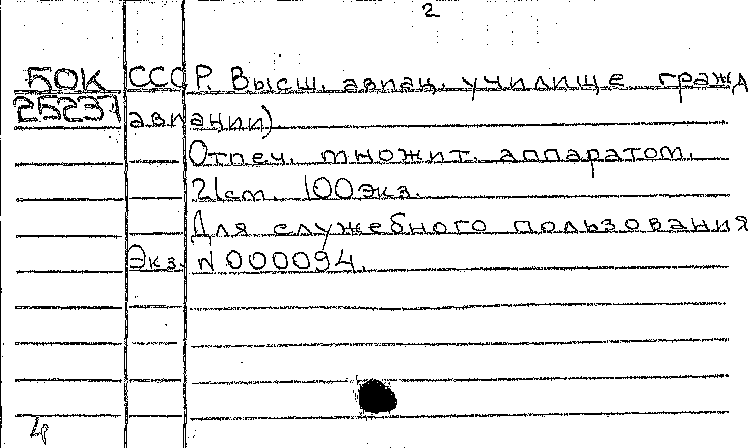 2
БОК СССР. Высш. авиац. училище гражд
25237 авиации)
Отпеч. множит. аппаратом.
21 cm. 100 экз.
Для служебного пользования
Экз. N 000094.